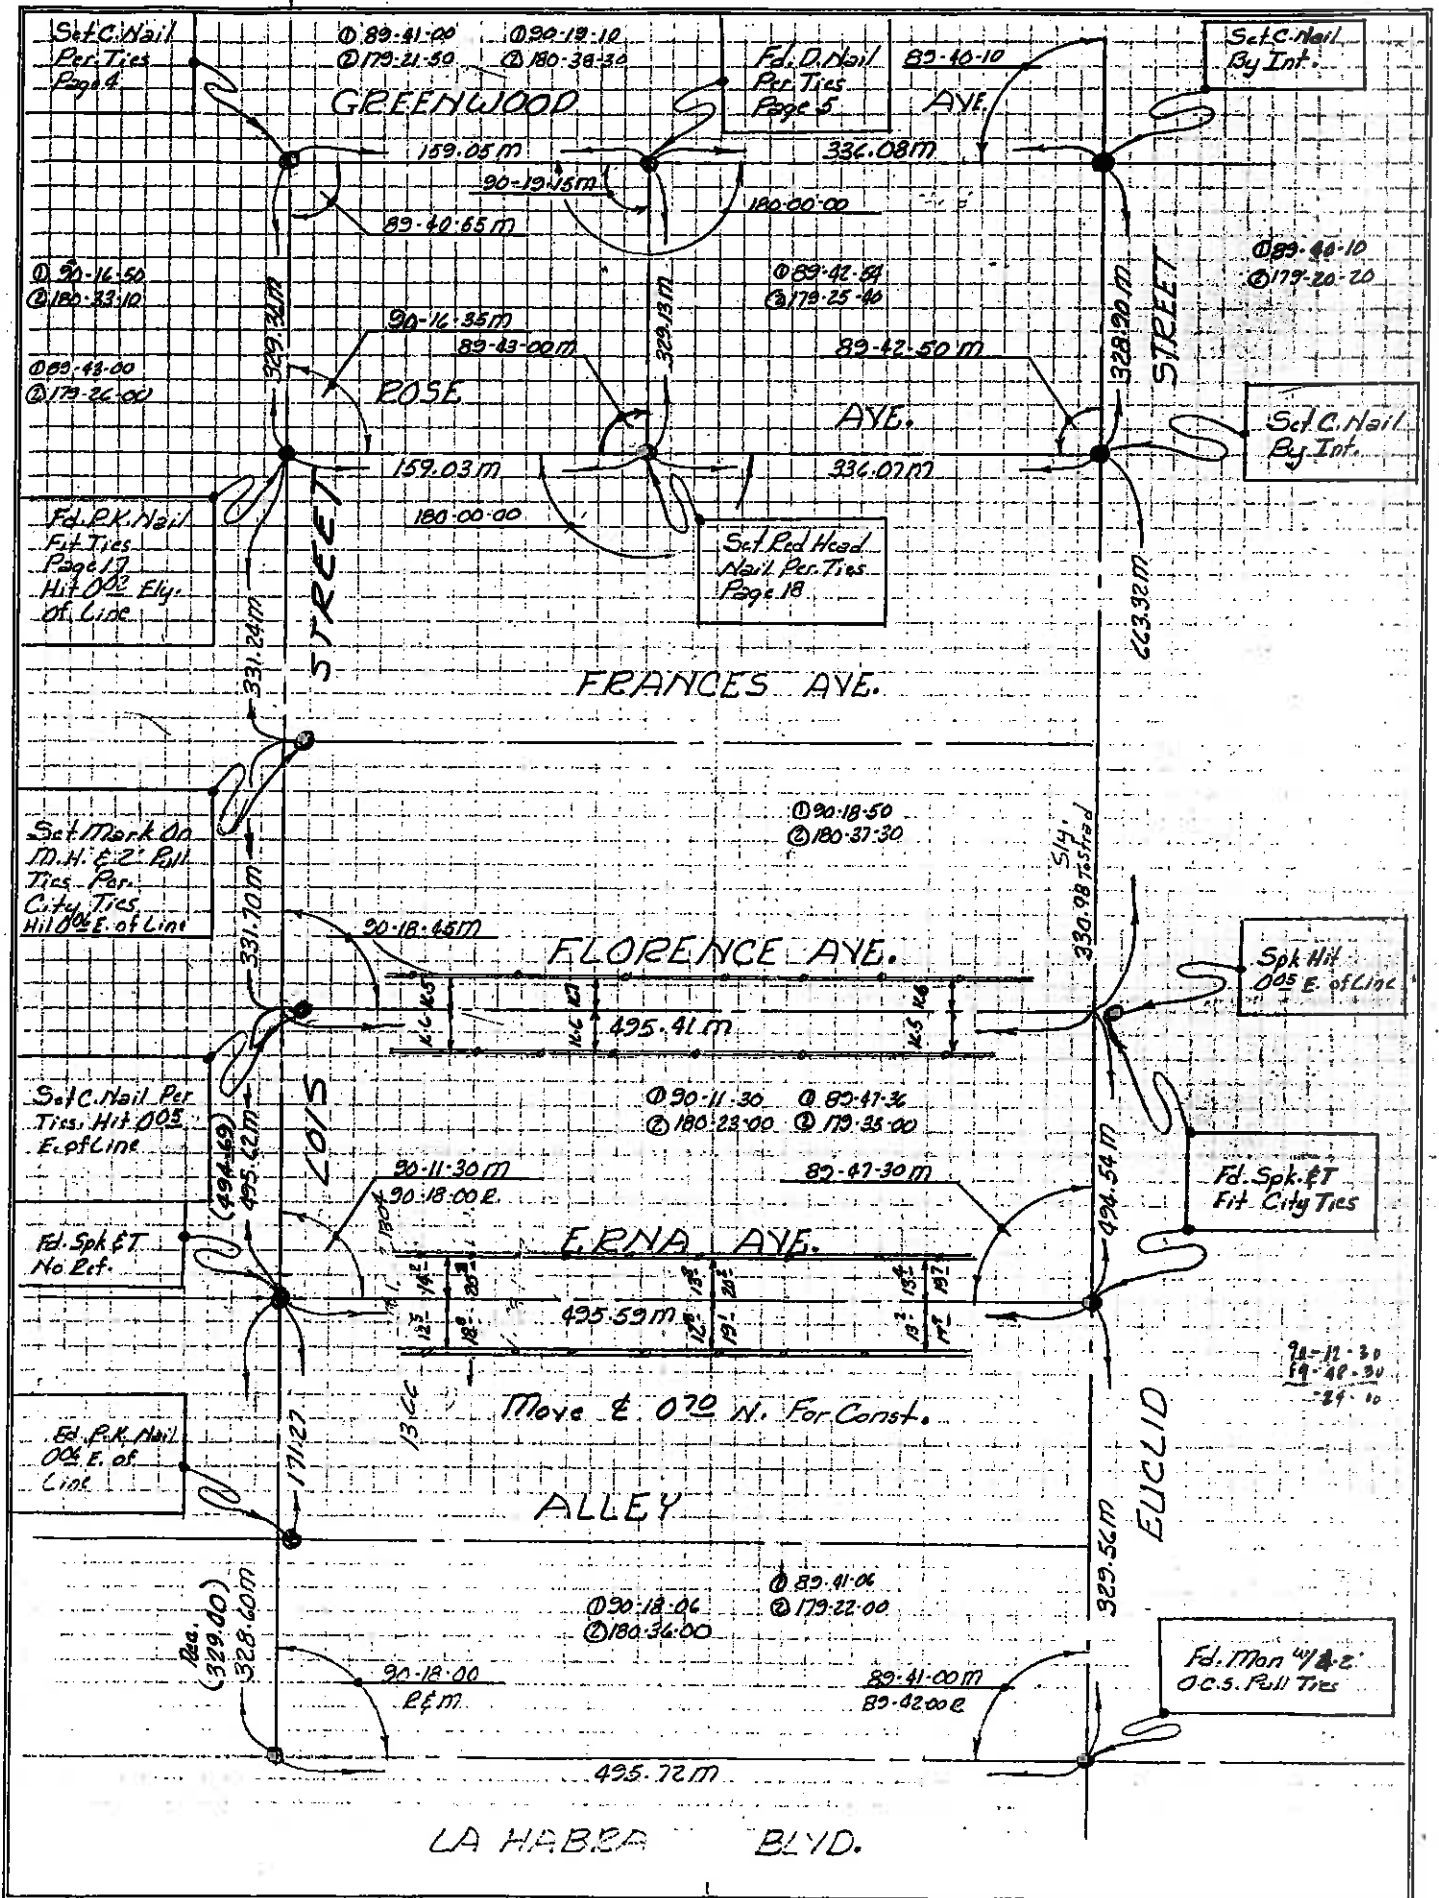 Set C. Nail
Per. Ties
Page 4
① 89-41-00
② 179-21-50
① 90-19-10
② 180-38-30
Fd. D. Nail
Per Ties
Page 5
89-40-10
Set C. Nail
By Int.
GREENWOOD AVE.
159.05 m
336.08 m
90-19-15 m
180-00-00
89-40-55 m
① 90-16-50
② 180-33-10
① 89-42-54
② 179-25-40
① 89-40-10
② 179-20-20
329.32 m
329.13 m
328.90 m
STREET
90-16-35 m
89-43-00 m
89-42-50 m
① 89-43-00
② 179-26-00
ROSE AVE.
Set C. Nail
By Int.
159.03 m
336.07 m
180-00-00
Fd. P.K. Nail
Fit Ties
Page 17
Hit 0.03 Ely.
of Line
Set Red Head
Nail Per. Ties
Page 18
STREET
331.24 m
663.32 m
FRANCES AVE.
Set Mark On
M.H. & 2' Pull
Ties Per.
City Ties
Hit 0.06 E. of Line
① 90-18-50
② 180-37-30
331.70 m
330.98
90-18-45 m
FLORENCE AVE.
Spk Hit
0.05 E. of Line
16.6 16.5
16.6 16.7
16.5 16.6
495.41 m
Set C. Nail Per
Ties. Hit 0.05
E. of Line
① 90-11-30
② 180-23-00
① 89-47-36
② 179-35-00
(494.69)
495.62 m
LOIS
494.54 m
90-11-30 m
90-18-00 R
89-47-30 m
Fd. Spk. & T
Fit City Ties
Fd. Spk & T
No Ref.
ERNA AVE.
495.59 m
Move ℄ 0.70 N. For Const.
13.66
Fd. P.K. Nail
0.06 E. of
Line
171.27
ALLEY
EUCLID
329.56 m
① 90-18-06
② 180-36-00
① 89-41-06
② 179-22-00
Rec.
(329.00)
328.60 m
90-18-00
R & M.
89-41-00 m
89-42-00 R
Fd. Mon w/ 4-2'
O.C.S. Pull Ties
495.72 m
LA HABRA BLVD.